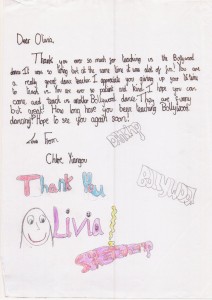 Dear Olivia,
Thank you ever so much for teaching us the Bollywood
dance. It was so tiring but at the same time it was a lot of fun. You are
a really great dance teacher. I appreciate you giving up your time
to teach us. You are ever so patient and kind. I hope you can
come and teach us another Bollywood dance. They are funny
but great! How long have you been teaching Bollywood
dancing? Hope to see you again soon!
Love From
Chloe
Thank You
BOLLYWOOD
Olivia